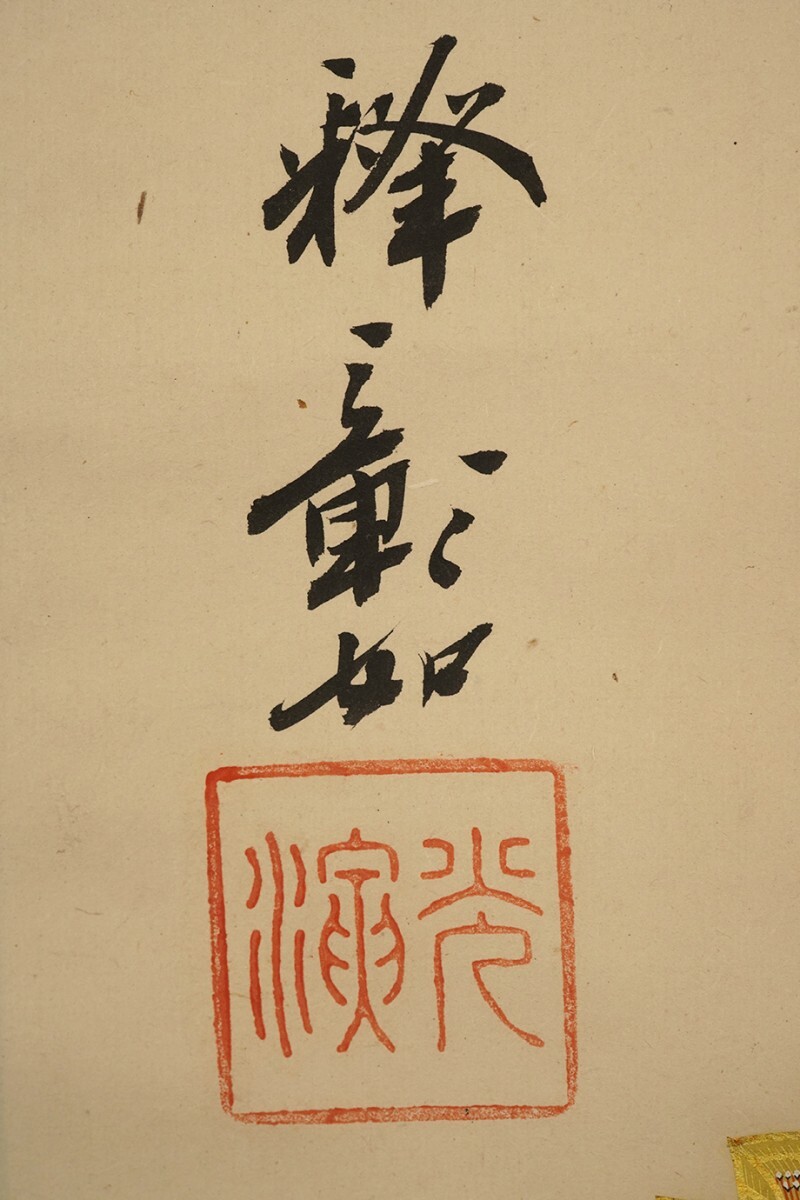 釋彰如
光演